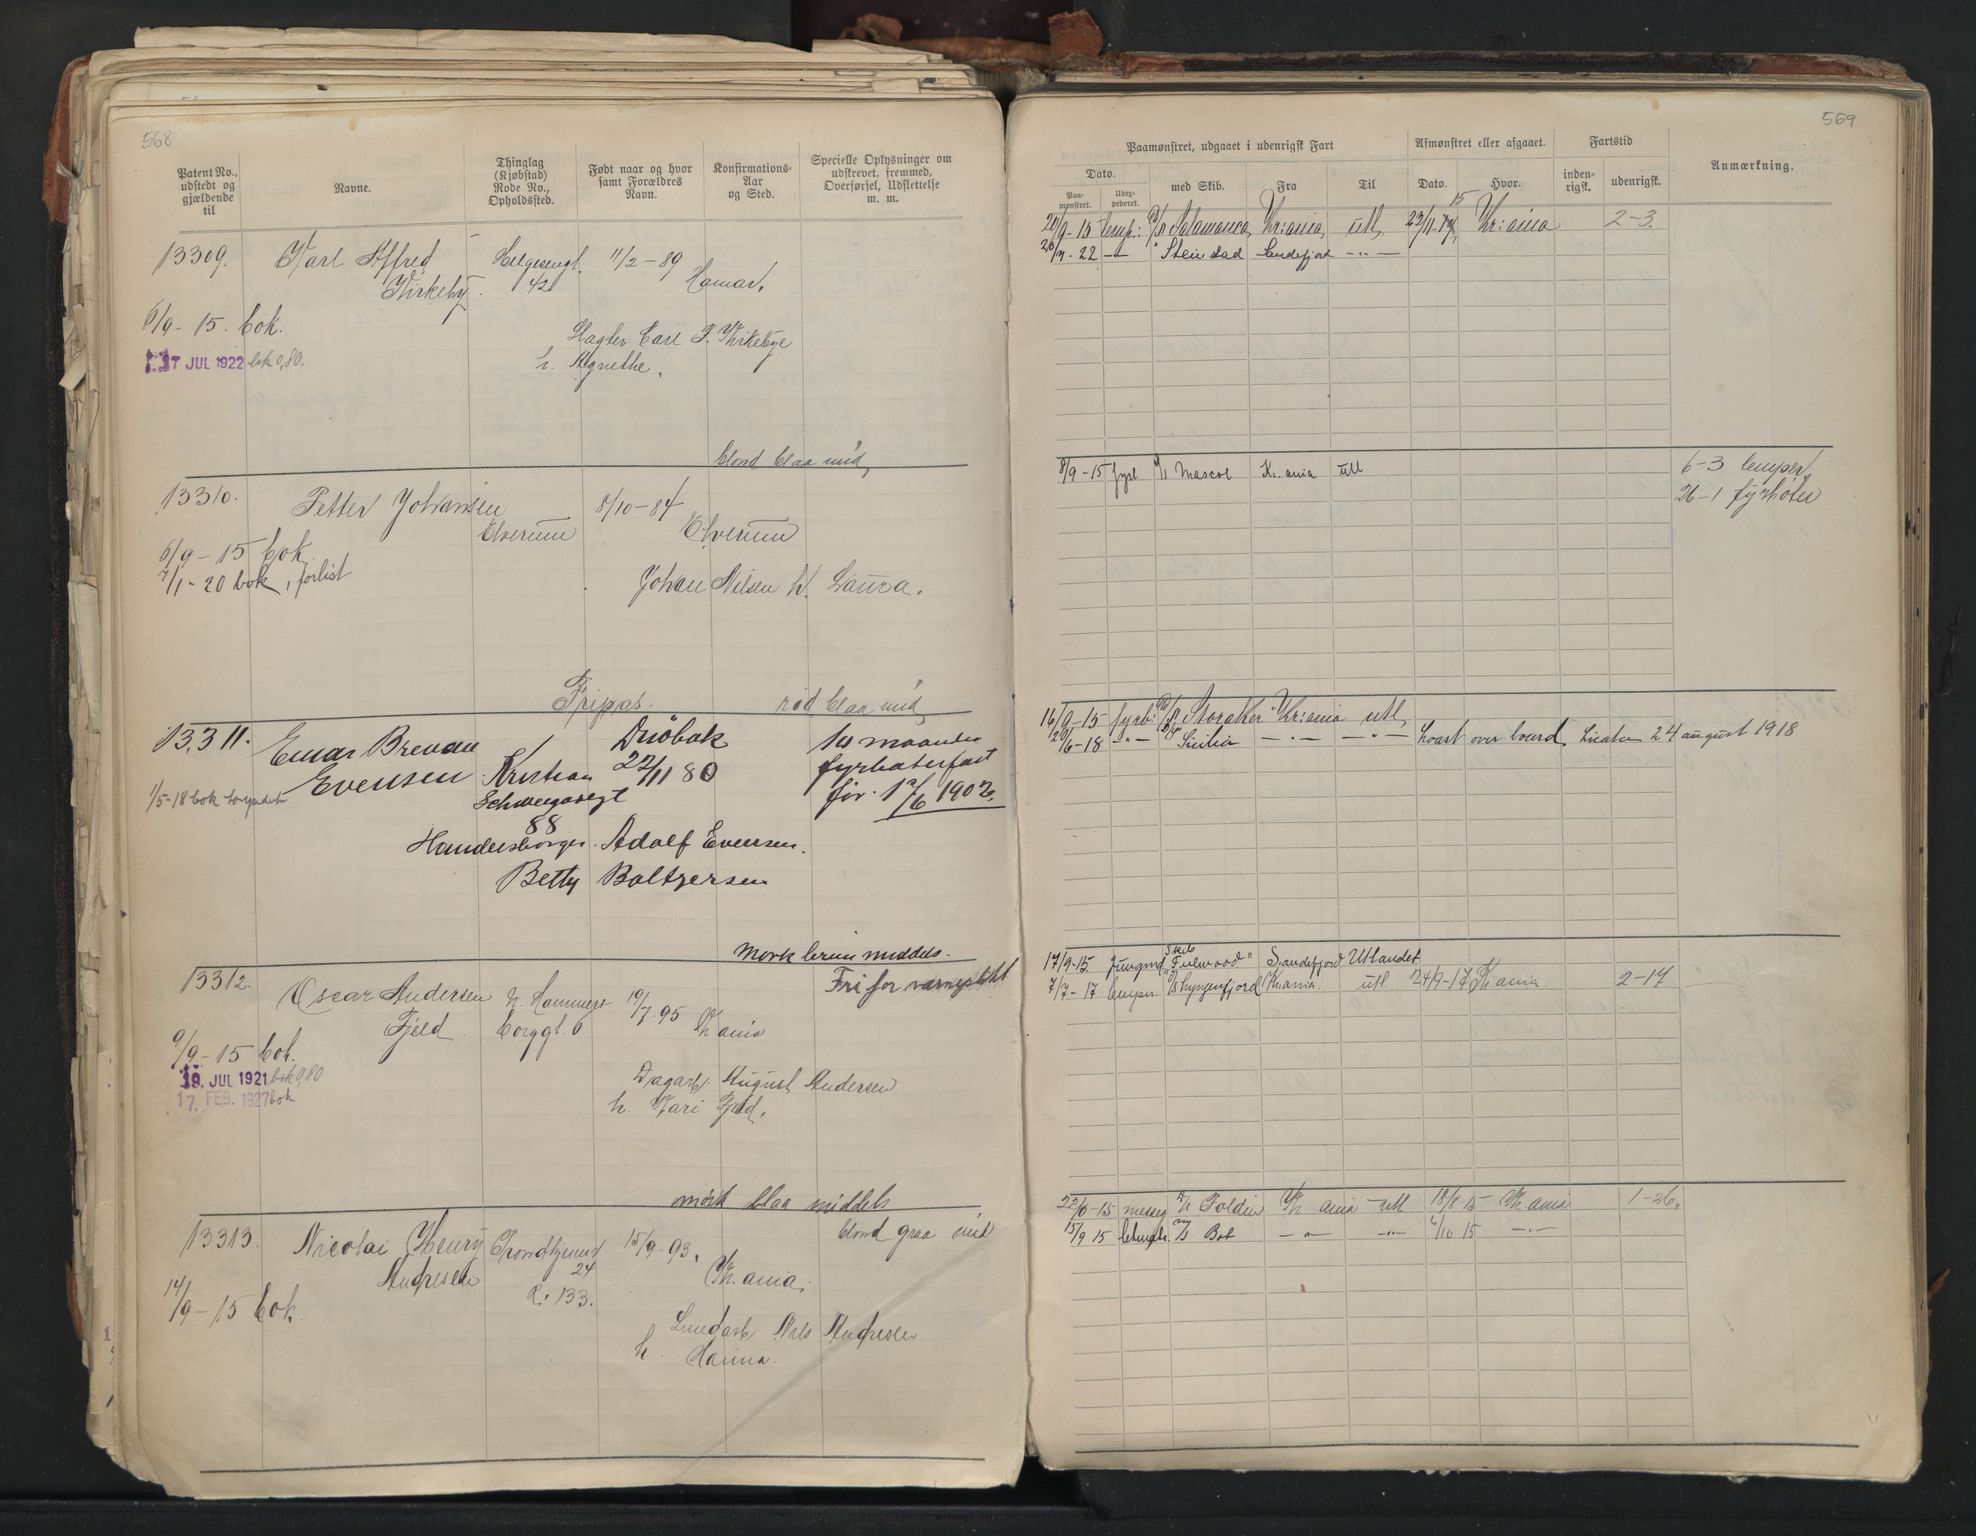 568
Patent No., udstedt og gjældende til
Navne.
Thinglag (Kjøbstad) Rode No., Opholdssted.
Født naar og hvor samt Forældres Navn.
Konfirmations-Aar og Sted.
Specielle Oplysninger om udskrevet, fremmed, Overførsel, Udslettelse m. m.
13309. Karl Alfred Helgesengt. 11/2-89
Kirkeby. 42 Hamar.
6/9-15. bok.
Carl F. Kirkebye
7 JUL 1922 bok 0,80. h. Agnethe.
blond blaa mid,
13310. Petter Johansen 8/10-84
Elverum Elverum
6/9-15 bok
7/1-20 bok, forlist Johan Nilsen h. Laura.
Fripas. rød blaa mid,
13311. Einar Brevan Drøbak 10 maaneder
Evensen Kristian 22/11 80 fyrbøterfart
1/5-18 bok Schweigaasgt før 1902
88
Adolf Evensen.
Betty Baltzersen
Mørk brun middels.
13312. Oscar Andersen N. Hammers 19/7.95 Fri for værneplikt
Fjeld. borggt. 6 Kr ania
9/9-15 bok.
19. JUL 1921 bok 0,80 Dagarb. August Andersen
17. FEB. 1927 bok h. Kari Fjeld.
mørk blaa middels
13313. Nicolai Henry Trondhjemsv 15/9-93. blond graa mid
Andresen 24 Kr. ania.
14/9-15 bok. R: 133.
Nils Andresen
h. Hanna.
569
Paamønstret, udgaaet i udenrigsk Fart
Afmønstret eller afgaaet.
Fartstid
Anmærkning.
Dato.
Paamønstret. Udexpederet.
med Skib. Fra Til Dato. Hvor. indenrigsk. udenrigsk.
20/9-15 Lemp: D/S Salamanca Kr:ania utl, 23/11 15 Kr:ania 2-3.
22 " Steinstad Sandefjord -"-
8/9-15 fyrb D/S Mascot Kr. ania utl 6-3 lemper,
26-1 fyrbøter
16/9-15 fyrb: D/S "Storaker" Kr:ania utl,
20/6-18 -"- D/S Sicilia -"- -"- over bord. 24 august 1918
17/9-15. Jungmd Skib "Fulwood" Sandefjord Utlandet
7/7-17 lemper D/S Lyngenfjord Kr.ania. utl. 24/9-17 Kr ania 2-17
22/6-15 messeg D/S Foldin Kr ania utl 18/8 15 Kr ania 1-26.
15/9 15 D/S Bob -"- -"- 4/10 15 -"-